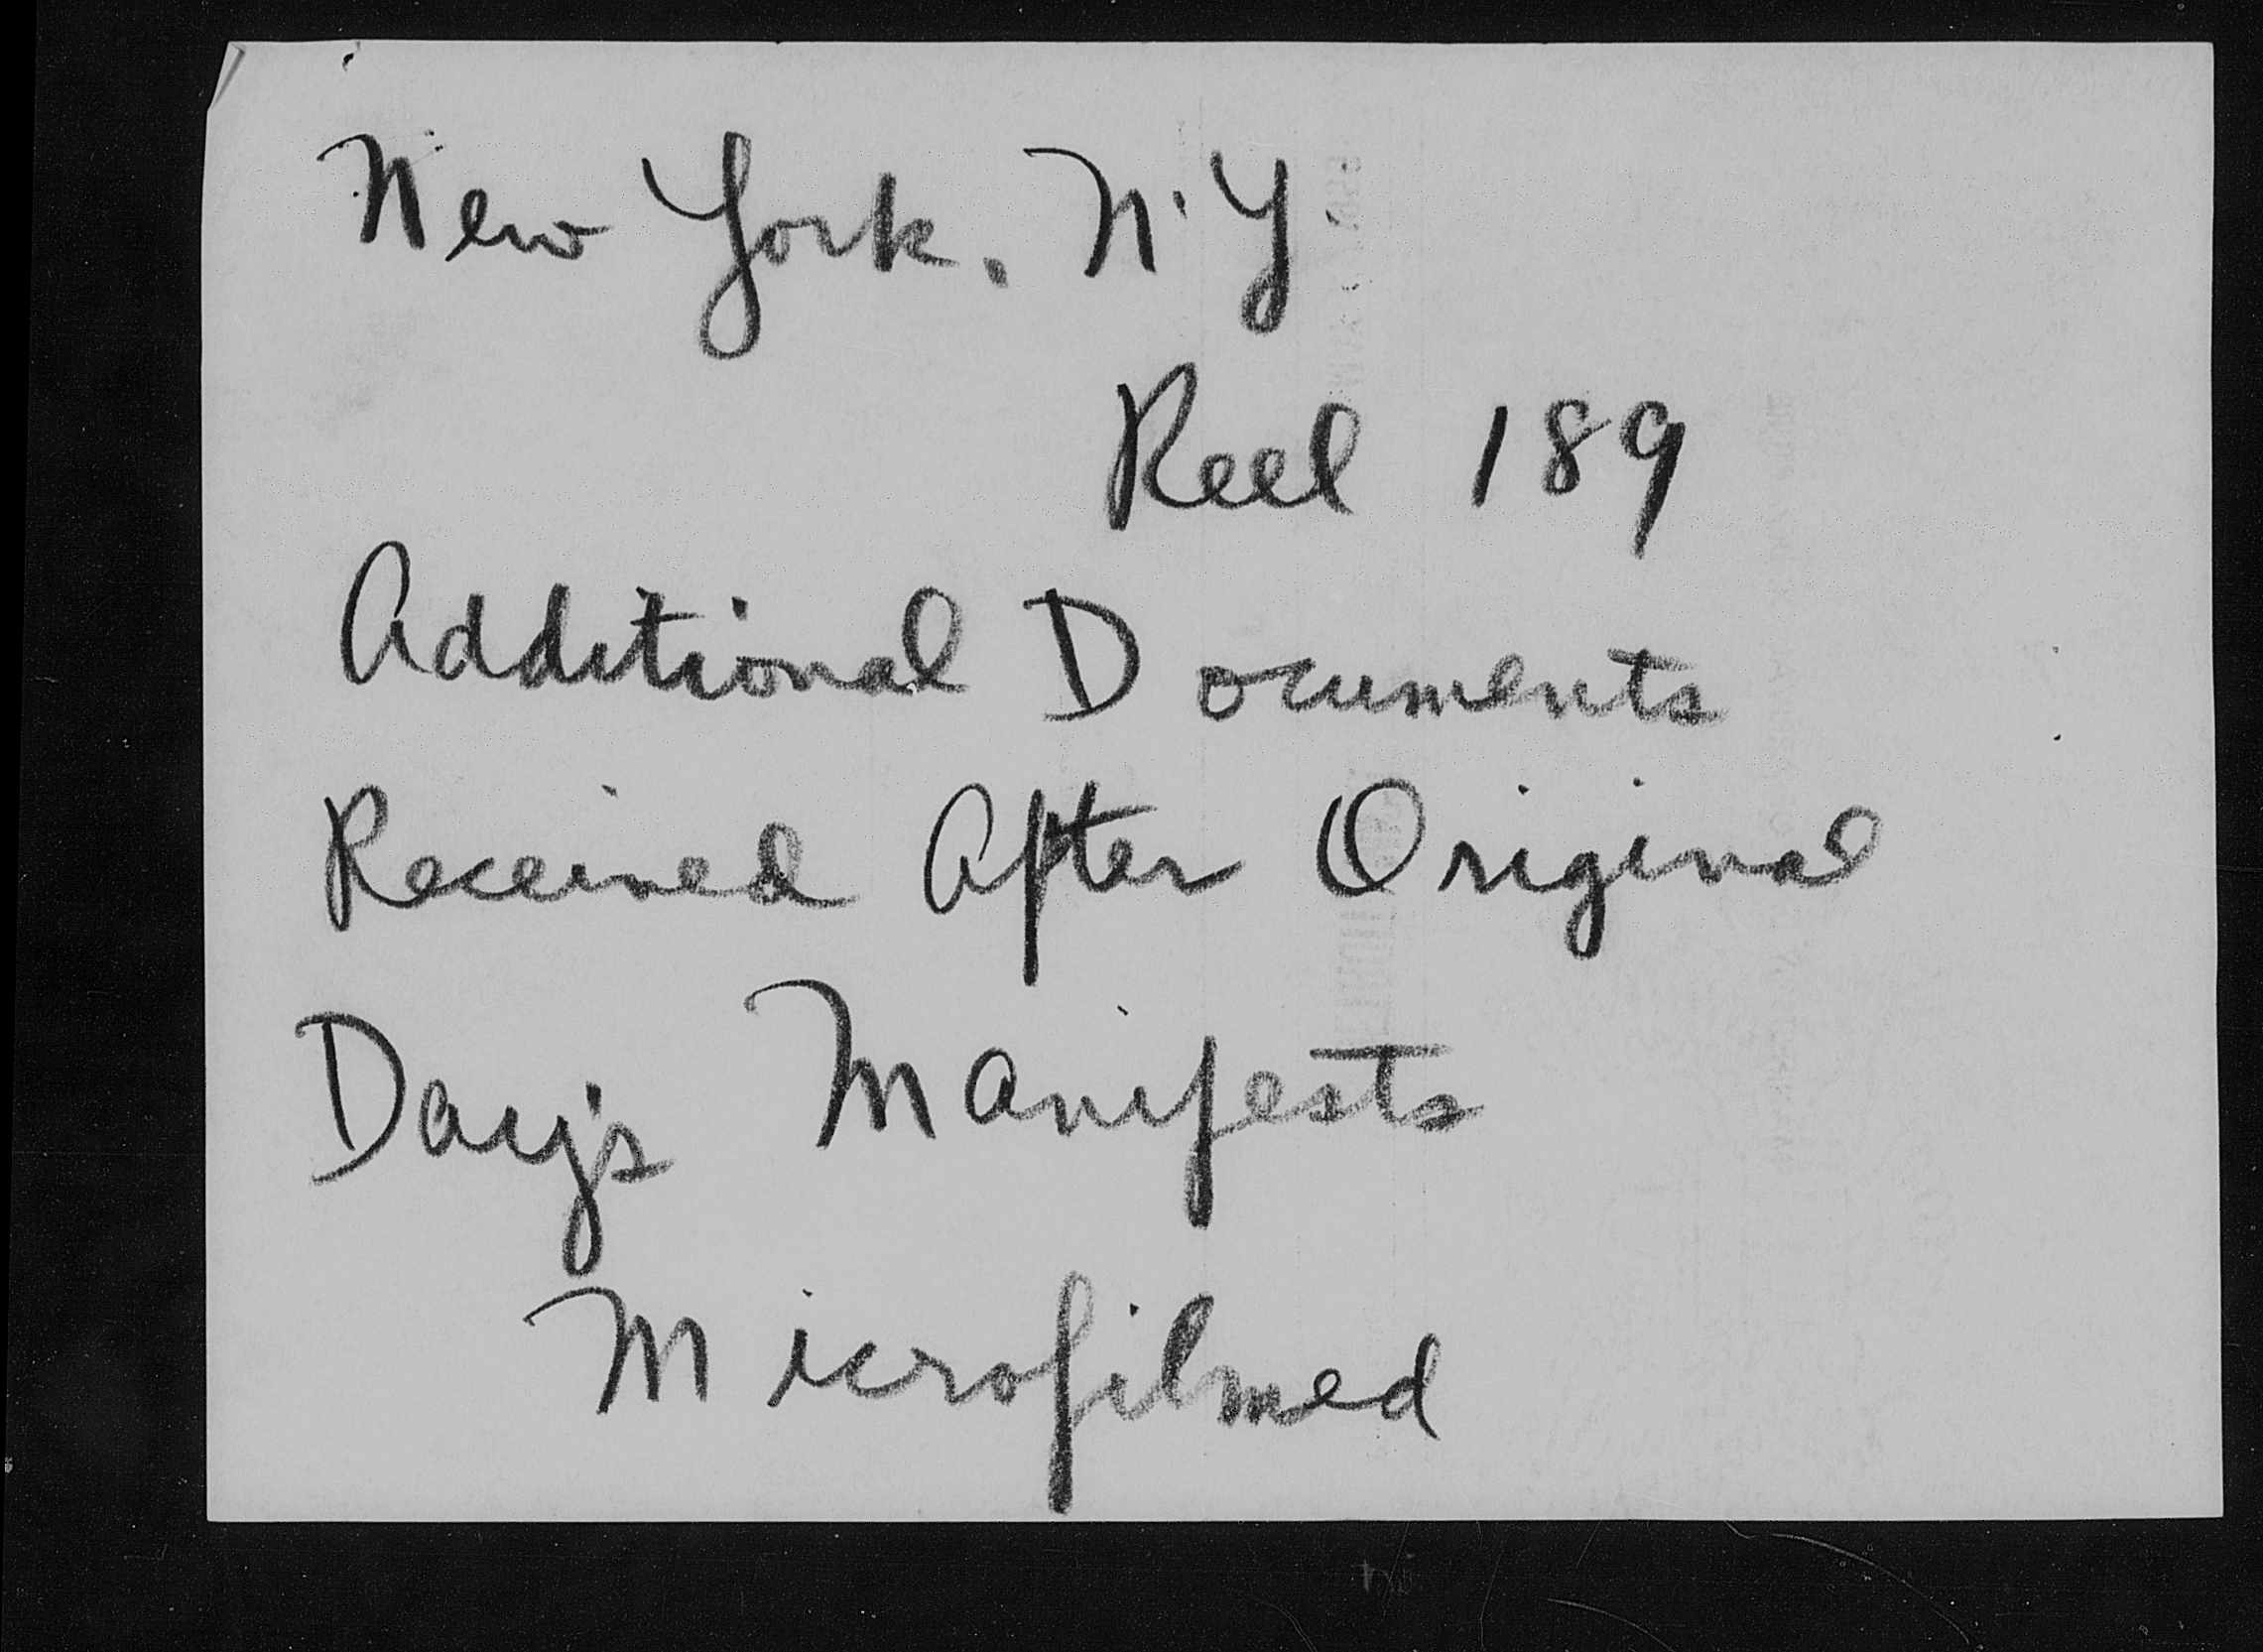 New York. N.Y.
Reel 189
Additional Documents
Received After Original
Day's Manifests
Microfilmed